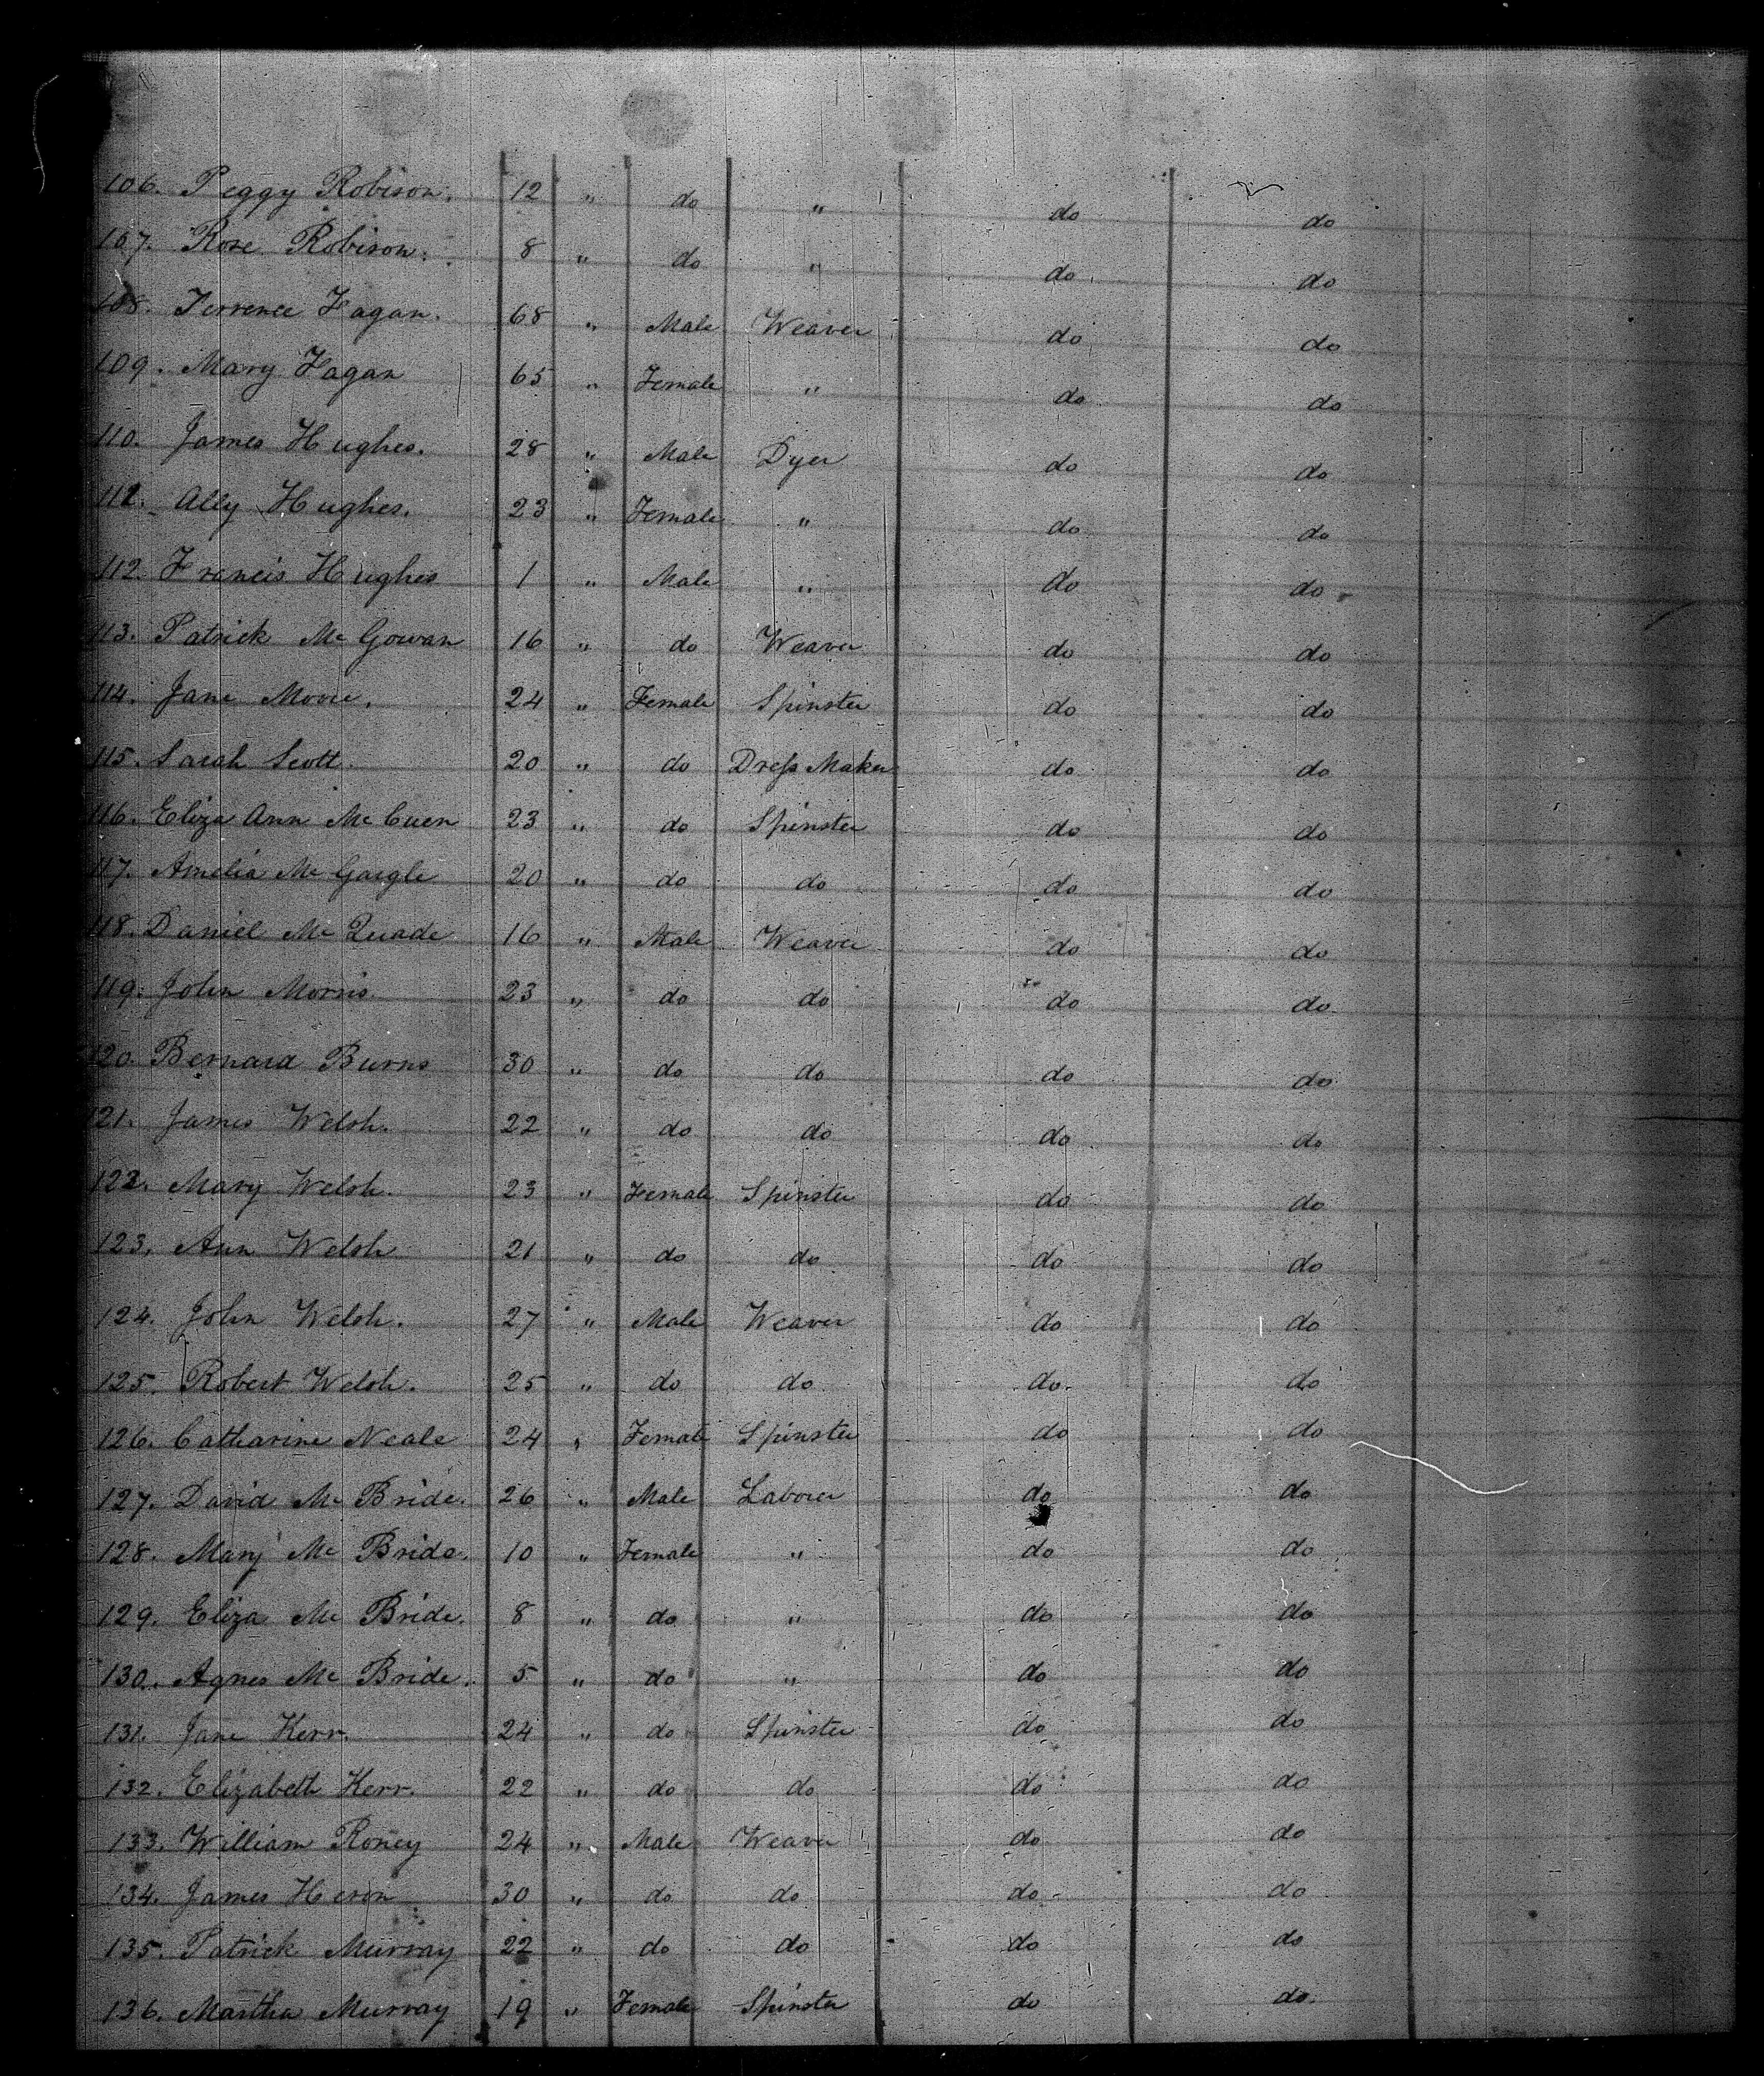 106. Peggy Robison. 12 " do " do do
107. Rose Robison. 8 " do " do do
108. Terrence Fagan. 68 " Male Weaver do do
109. Mary Fagan 65 " Female " do do
110. James Hughes. 28 " Male Dyer do do
112. Ally Hughes. 23 " Female " do do
112. Francis Hughes 1 " Male " do do
113. Patrick Mc Gowan 16 " do Weaver do do
114. Jane Moore. 24 " Female Spinster do do
115. Sarah Scott. 20 " do Dress Maker do do
116. Eliza Ann Mc Cuen 23 " do Spinster do do
117. Amelia Mc 20 " do do do do
118. Daniel Mc Quade 16 " Male Weaver do do
119. John Morris 23 " do do do do
120. Bernard Burns 30 " do do do do
121. James Welsh. 22 " do do do do
122. Mary Welsh. 23 " Female Spinster do do
123. Ann Welsh 21 " do do do do
124. John Welsh. 27 " Male Weaver do do
125. Robert Welsh. 25 " do do do do
126. Catharine Neale 24 " Female Spinster do do
127. David Mc Bride. 26 " Male Laborer do do
128. Mary Mc Bride. 10 " Female " do do
129. Eliza Mc Bride. 8 " do " do do
130. Agnes Mc Bride. 5 " do " do do
131. Jane Kerr. 24 " do Spinster do do
132. Elizabeth Kerr. 22 " do do do do
133. William Roney 24 " Male Weaver do do
134. James Heron 30 " do do do do
135. Patrick Murray 22 " do do do do
136. Martha Murray 19 " Female Spinster do do.